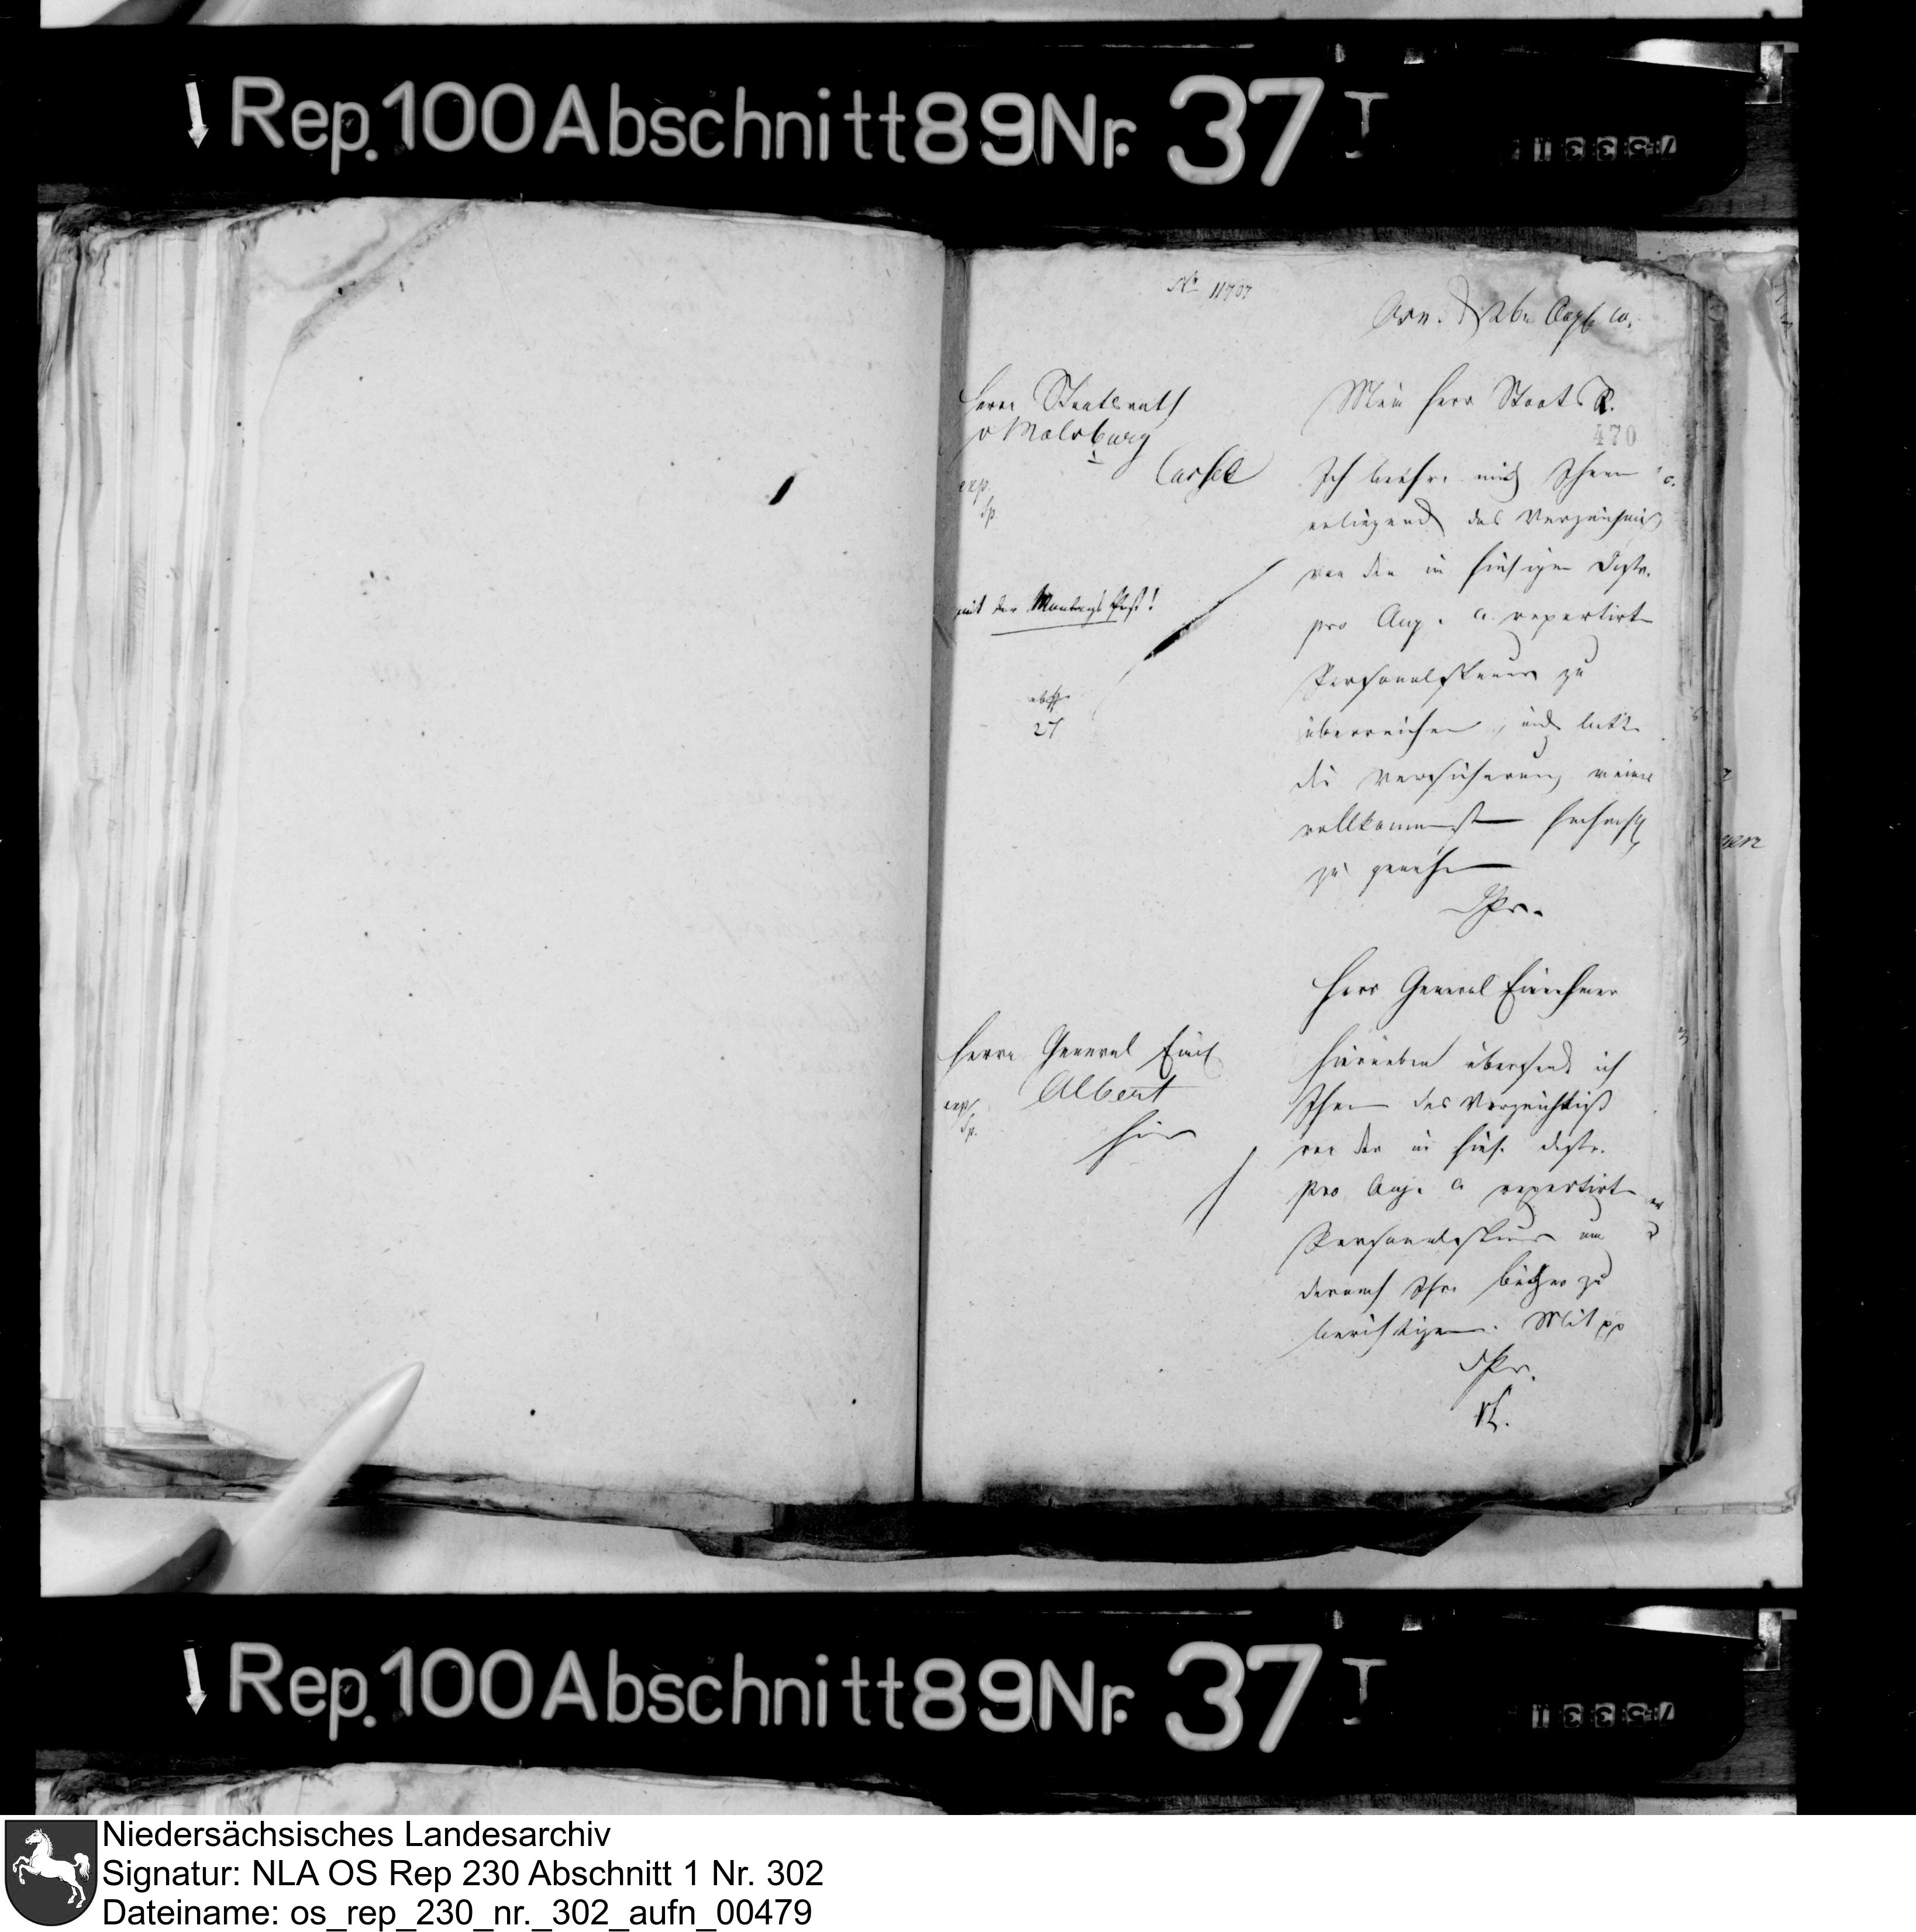 Rep. 100 Abschnitt 89 Nr. 37 I
No 11707
Osn. d 26n Aug 10.
Herrn Staatsrath
v Malsburg
Cassel
exp.
Sp.
mit der Montags Post!
abss
27
Mein Herr Staats R.
470
Ich beehre mich Ihnen
anliegend das Verzeichniß
von den in hiesigem Distr.
pro Aug. a. repartirten
Personalsteuer zu
überreichen, und bitte
die Versicherung meiner
vollkommensten Hochacht
zu genehmigen
DPr.
Herrn General Einn
Albert
hier
exp.
Sp.
Herr General Einnehmer
Hierneben übersende ich
Ihnen das Verzeichniß
von der in hies. Distr.
pro Aug. a repartirten
Personalsteuer um
darnach Ihre Bücher zu
berichtigen. Mit pp
DPr.
Rep. 100 Abschnitt 89 Nr. 37 I
Niedersächsisches Landesarchiv
Signatur: NLA OS Rep 230 Abschnitt 1 Nr. 302
Dateiname: os_rep_230_nr._302_aufn_00479